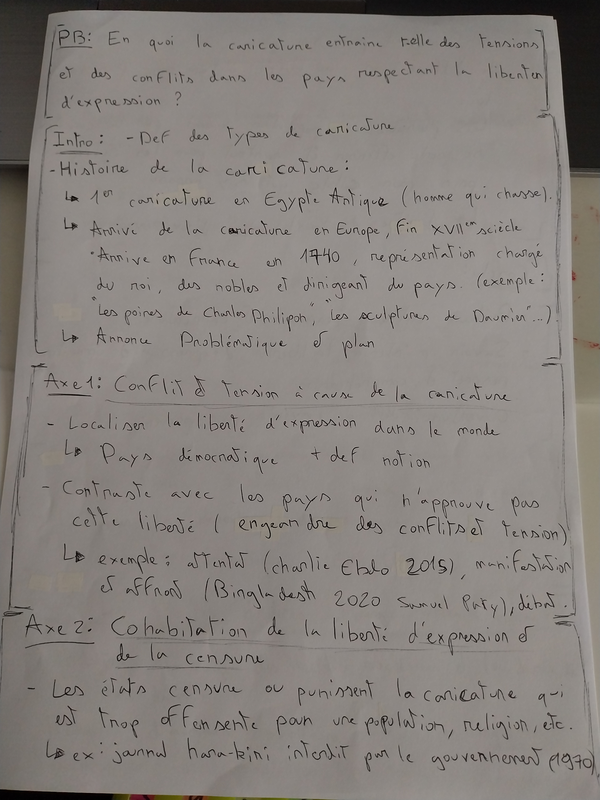 PB: En quoi la caricature entraine t-elle des tensions
et des conflits dans les pays respectant la liberter
d'expression ?
Intro: - Def des types de caricature
- Histoire de la caricature :
↳ 1er caricature en Egypte Antique (homme qui chasse).
↳ Arrivé de la caricature en Europe, fin XVIIem sciècle
• Arrive en France en 1740, représentation chargé
du roi, des nobles et dirigeant du pays. (exemple :
"Les poires de Charles Philipon", "Les sculptures de Daumier"...)
↳ Annonce Problématique et plan
Axe 1: Conflit et tension à cause de la caricature
- Localiser la liberté d'expression dans le monde
↳ Pays démocratique + def notion
- Contraste avec les pays qui n'approuve pas
cette liberté (engeandre des conflits et tension)
↳ exemple : attentat (charlie Ebdo 2015), manifestation
et affront (Bingladesh 2020 Samuel Paty), débat.
Axe 2: Cohabitation de la liberté d'expression et
de la censure
- Les états censure ou punissent la caricature qui
est trop offensente pour une population, religion, etc.
↳ ex : journal hara-kiri interdit par le gouvernement (1970)